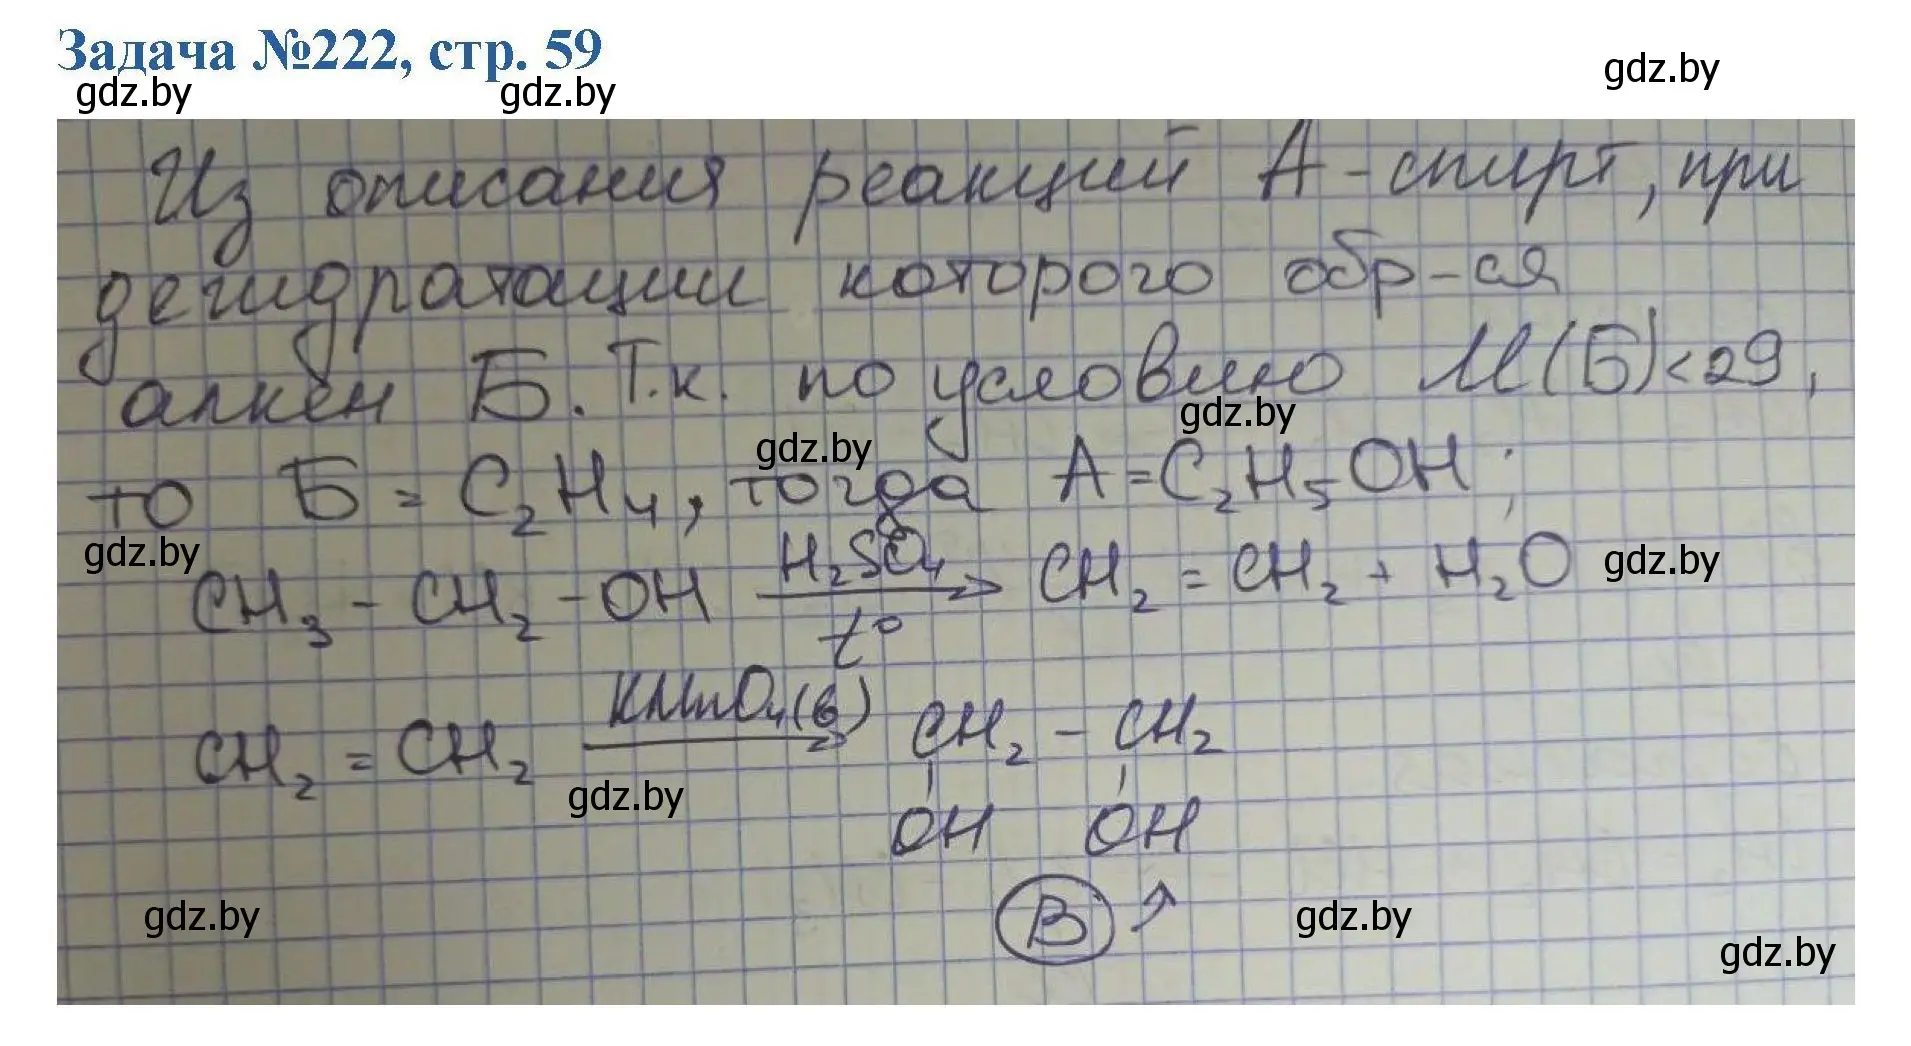 Задача №222, стр. 59
gdz.by
gdz.by gdz.by
Из описания реакций А-спирт, при
дегидратации которого обр-ся
алкен Б. Т.к. по условию М(Б)<29,
gdz.by
gdz.by
то Б = C₂H₄, тогда А=C₂H₅OH;
gdz.by
gdz.by
CH₃ - CH₂ - OH H₂SO₄ t° → CH₂ = CH₂ + H₂O
CH₂ = CH₂ KMnO₄(в) → CH₂ - CH₂
gdz.by
OH OH
В ↗
gdz.by
gdz.by
gdz.by